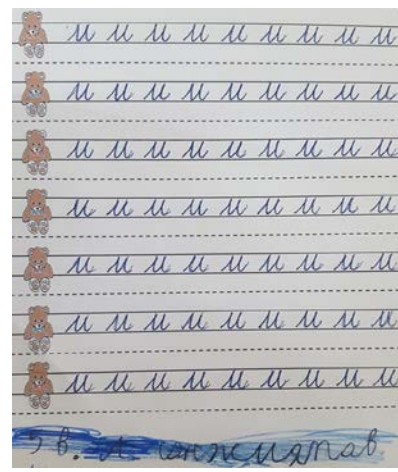 и и и и и и и и и
и и и и и и и и и
и и и и и и и и и
и и и и и и и и и
и и и и и и и и и
и и и и и и и и и
и и и и и и и и и
в.